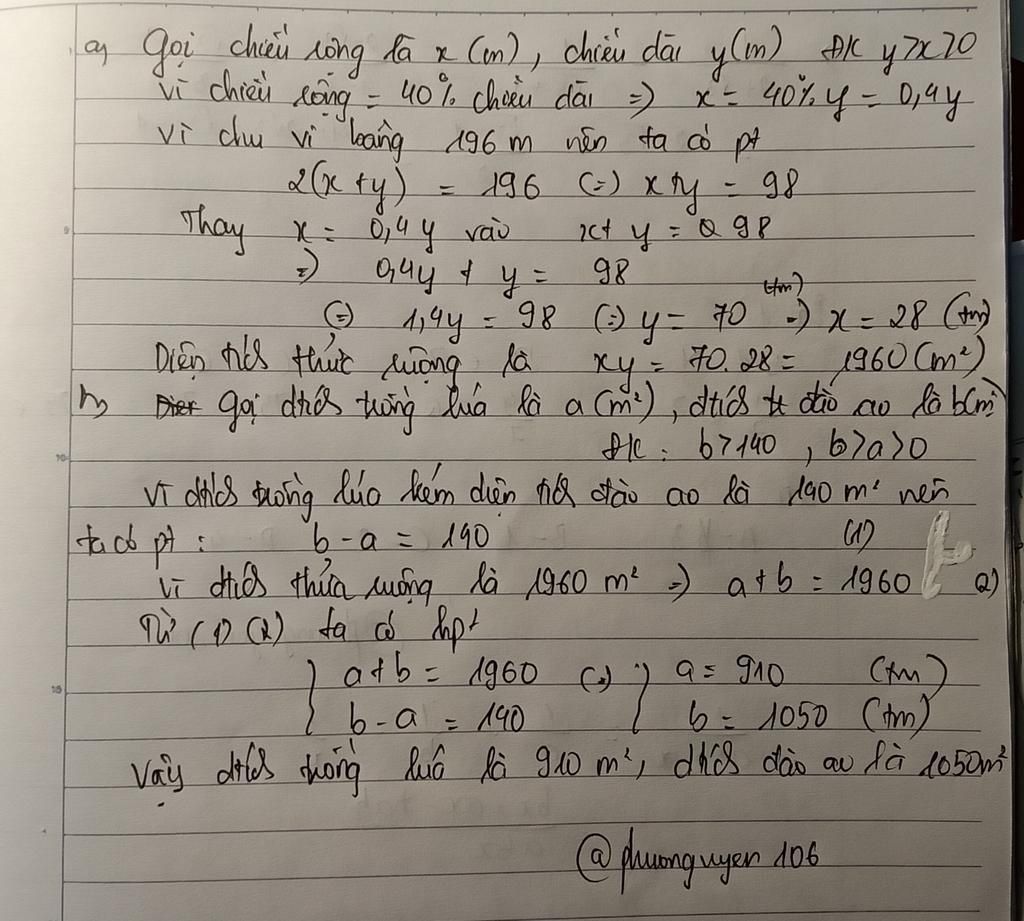 a) Gọi chiều rộng là x (m), chiều dài y (m) ĐK y>x>0
Vì chiều rộng = 40% chiều dài => x = 40% y = 0,4y
Vì chu vi bằng 196 m nên ta có pt
2(x+y) = 196 (=) x+y = 98
Thay x = 0,4y vào x+ y = 98
=) 0,4y + y = 98
(=) 1,4y = 98 (=) y = 70 (tm) =) x = 28 (tm)
Diện tích thửc ruộng là xy = 70.28 = 1960 (m²)
b) gọi dtích trồng lúa là a (m²), dtích đào ao là b(m²)
ĐK: b>140, b>a>0
Vì dtích trồng lúa kém diện tích đào ao là 140 m² nên
ta có pt: b-a = 140 (1)
Vì dtích thửa ruộng là 1960 m² =) a+b = 1960 (2)
Từ (1) (2) ta có hpt
{ a+b = 1960 (=) { a = 910 (tm)
{ b-a = 140 { b = 1050 (tm)
Vậy dtích trồng luá là 910 m², dtích đào ao là 1050m²
@phuonguyen106